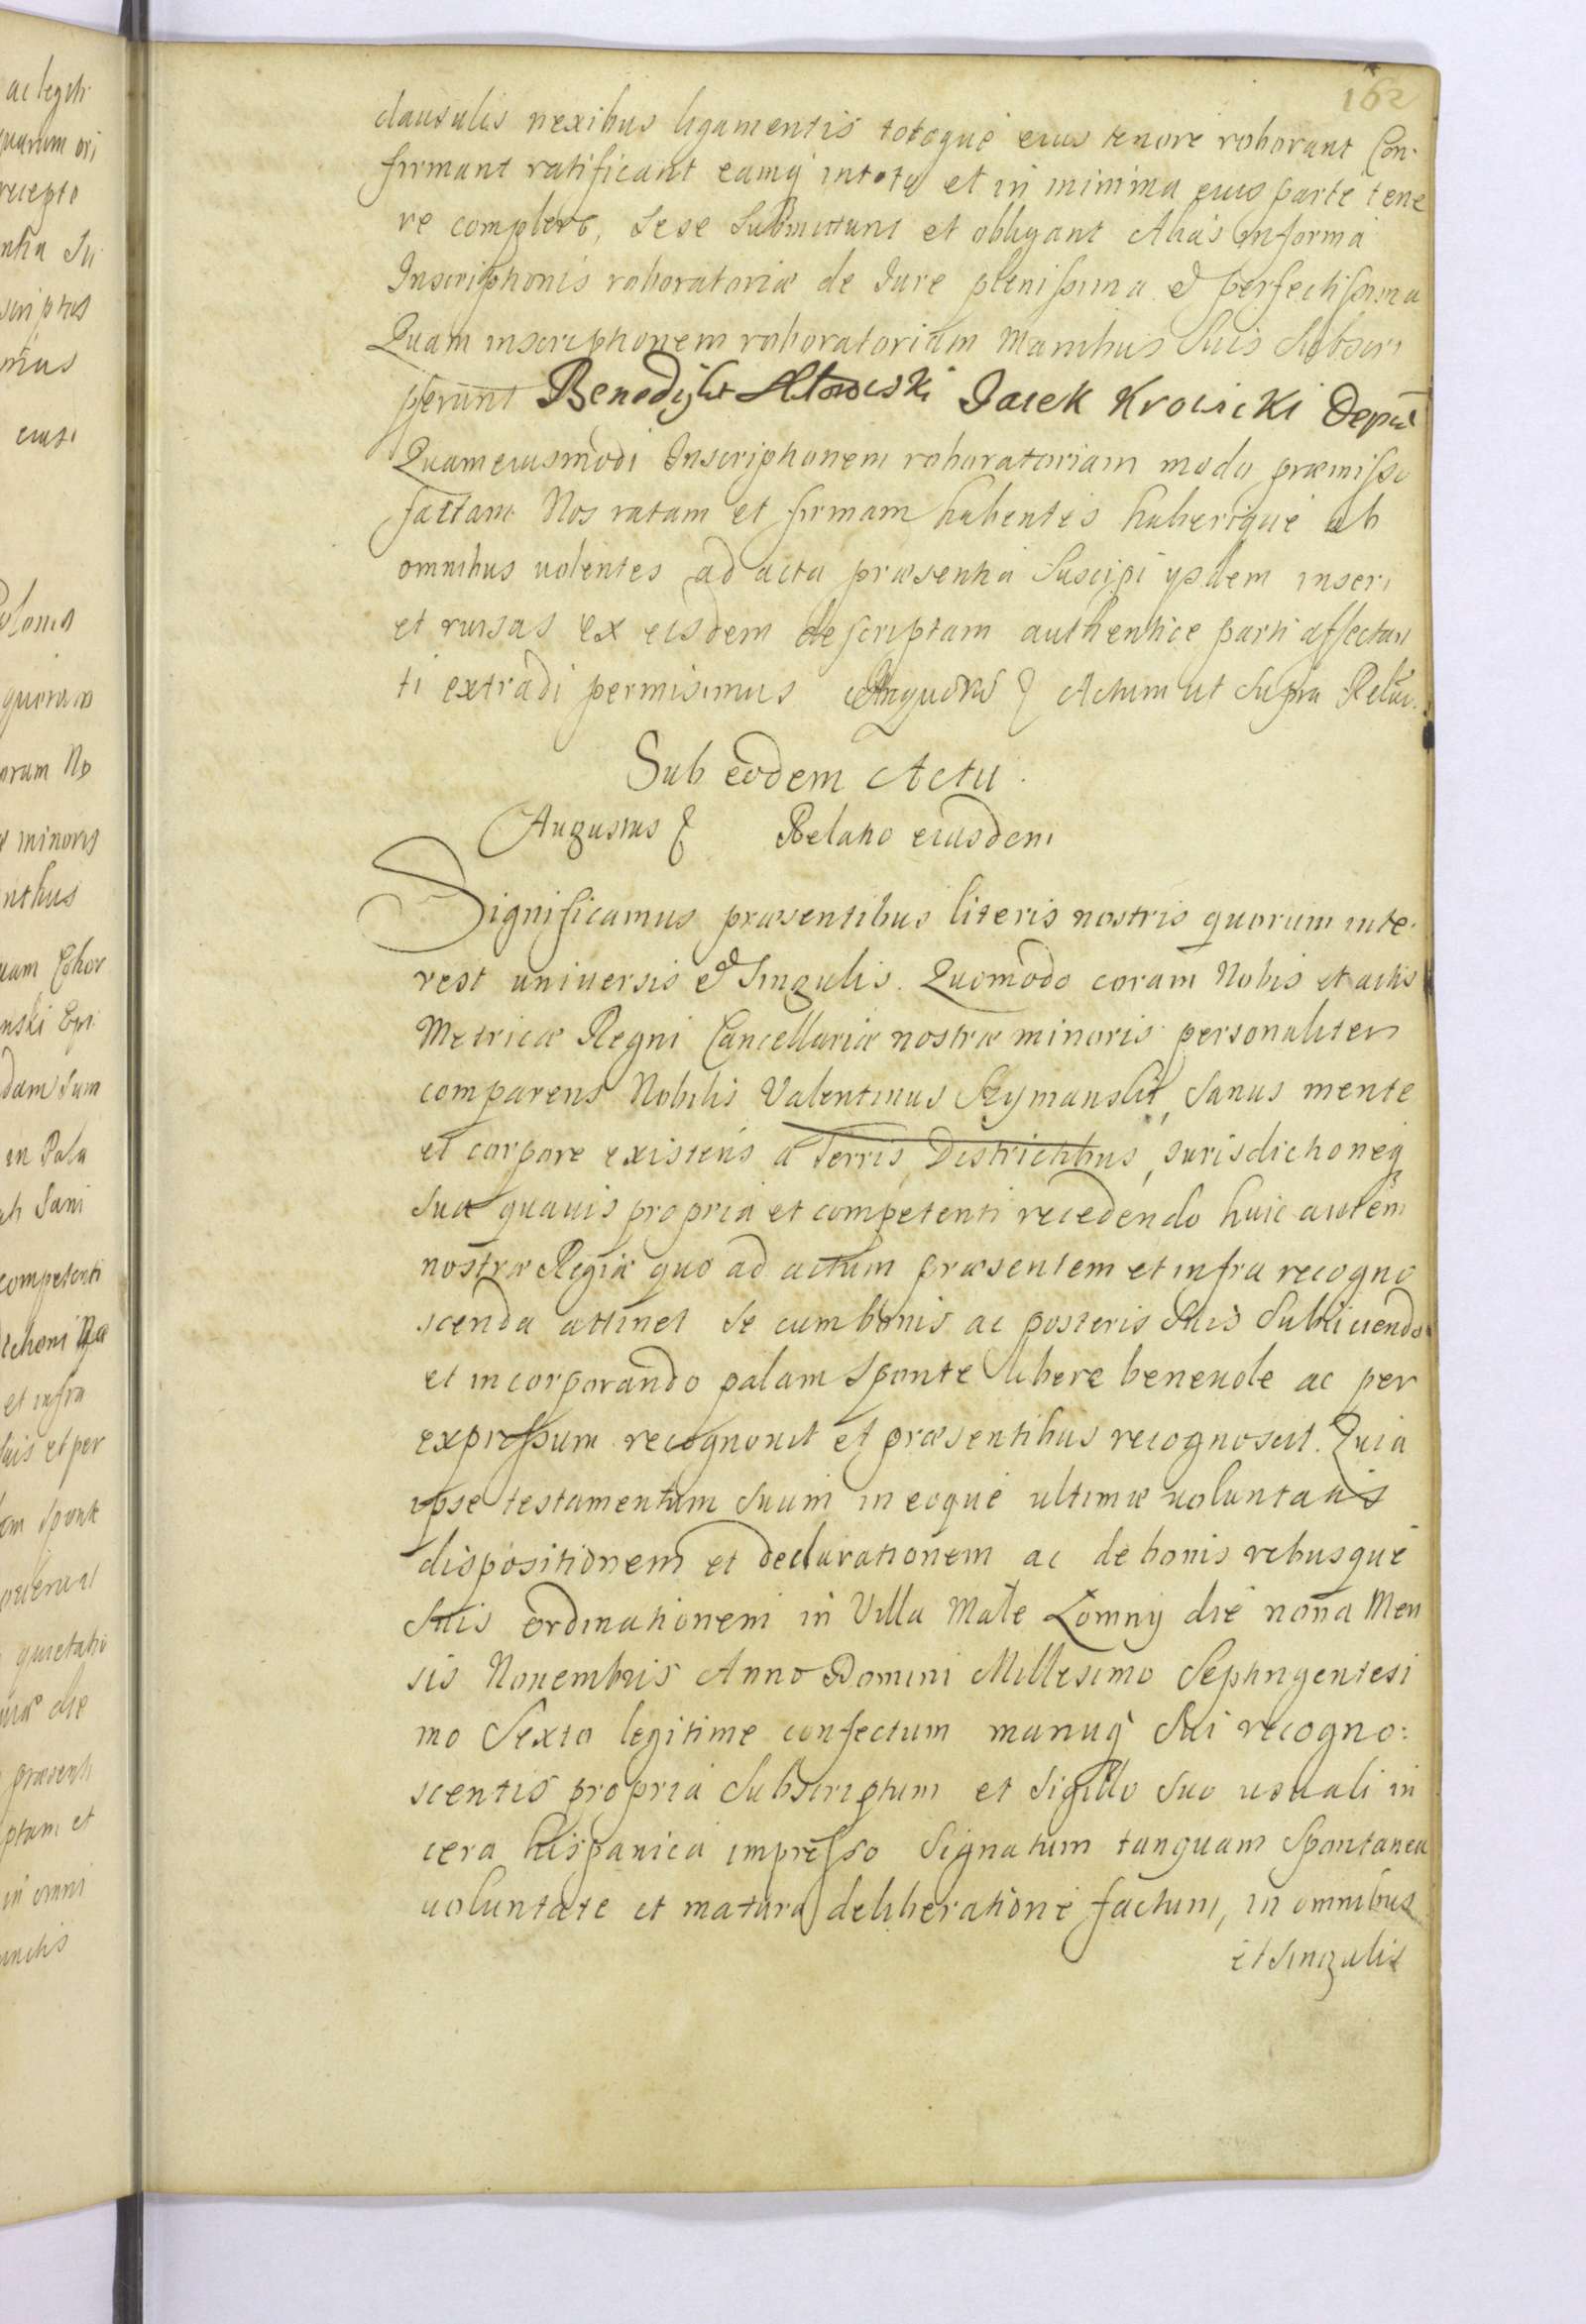 162
clausulis nexibus ligamentis totoque eius tenore roborant Con-
firmant ratificant eamq in tota et in minima eius parte tene
re complere, sese submittunt et obligant Alias in forma
Inscriptionis roboratoriæ de Jure plenissima et perfectissima
Quam inscriptionem roboratoriam Manibus suis subscri
pserunt Jacek Krowicki
Quam eiusmodi Inscriptionem roboratoriam modo præmisso
factam Nos ratam et firmam habentes haberique ab
omnibus uolentes ad acta præsentia suscipi ysdem inseri
et rursus ex eisdem descriptam authentice parti affectan
ti extradi permisimus Actum ut supra
Sub eodem Actu
Augustus Relatio eiusdem
Significamus præsentibus literis nostris quorum inte-
rest uniuersis et singulis. Quomodo coram Nobis et actis
Metricæ Regni Cancellariæ nostræ minoris personaliter
comparens Nobilis Valentinus Szymanski, sanus mente
et corpore existens a Terris, Districtibus, iurisdictioneq
sua quauis propria et competenti recedendo huic autem
nostræ Regiæ quo ad actum præsentem et infra recogno
scenda attinet se cum bonis ac posteris suis subiiciendo
et incorporando palam sponte libere beneuole ac per
expressum recognouit et præsentibus recognoscit. Quia
ipse testamentum suum in eoque ultimæ uoluntatis
dispositionem et declarationem ac de bonis rebusque
suis ordinationem in Villa Małe Łomny die nona Men
sis Nouembris Anno Domini Millesimo Septingentesi
mo Sexto legitime confectum manuq sui recogno:
scentis propria subscriptum et sigillo suo usuali in
cera hispanica impresso signatum tanquam spontanea
uoluntate et matura deliberatione factum, in omnibus
et singulis